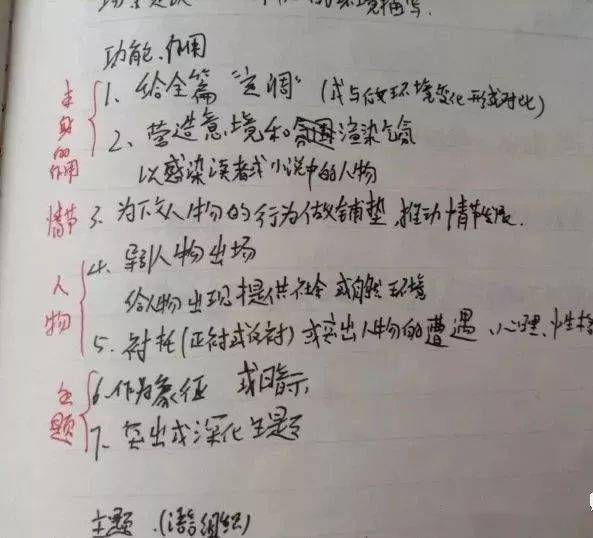 功能、作用
本身的作用
1、给全篇“定调”(或与后文环境变化形成对比)
2、营造意境和渲染气氛
以感染读者或小说中的人物
情节
3、为下文人物的行为做铺垫,推动情节发展.
人物
4、引人物出场
给人物出现提供社会或自然环境
5、衬托(正衬或反衬)或突出人物的遭遇、心理、性格
主题
6、作为象征 或暗示
7、突出或深化主题
主题.(语言组织)